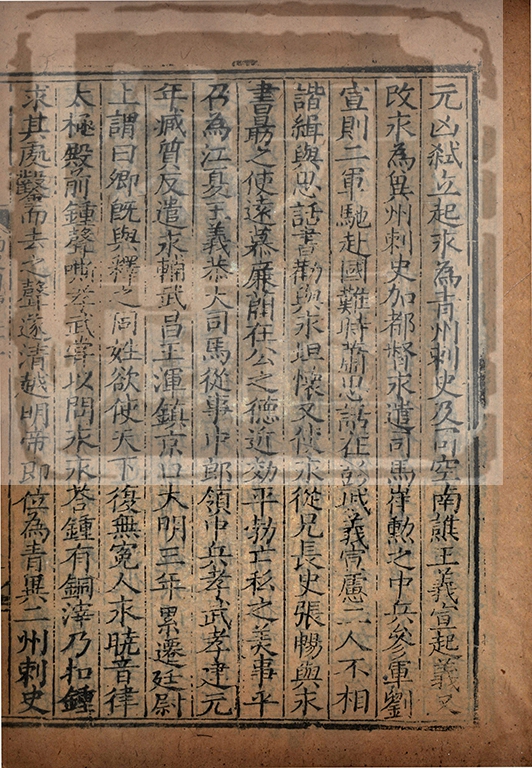 元凶弑立起永為青州刺史及司空南譙王義宣起義又
改永為兾州刺史加都督永遣司馬崔勲之中兵叅軍劉
宣則二軍馳赴國難時蕭思話在彭城義宣慮二人不相
諧緝與思話書勸與永坦懷又使永從兄長史張暢與永
書曷之使遠慕廉藺在公之德近効平勃亡私之美事平
召為江夏王義恭大司馬從事中郎領中兵孝武孝建元
年臧質反遣永輔武昌王渾鎮京口大明三年累遷廷尉
上謂曰卿旣與釋之同姓欲使天下復無冤人永曉音律
太極殿前鍾聲嘶孝武甞以問永永荅鍾有銅滓乃扣鍾
求其處鑿而去之聲遂清越明帝即位為青兾二州刺史